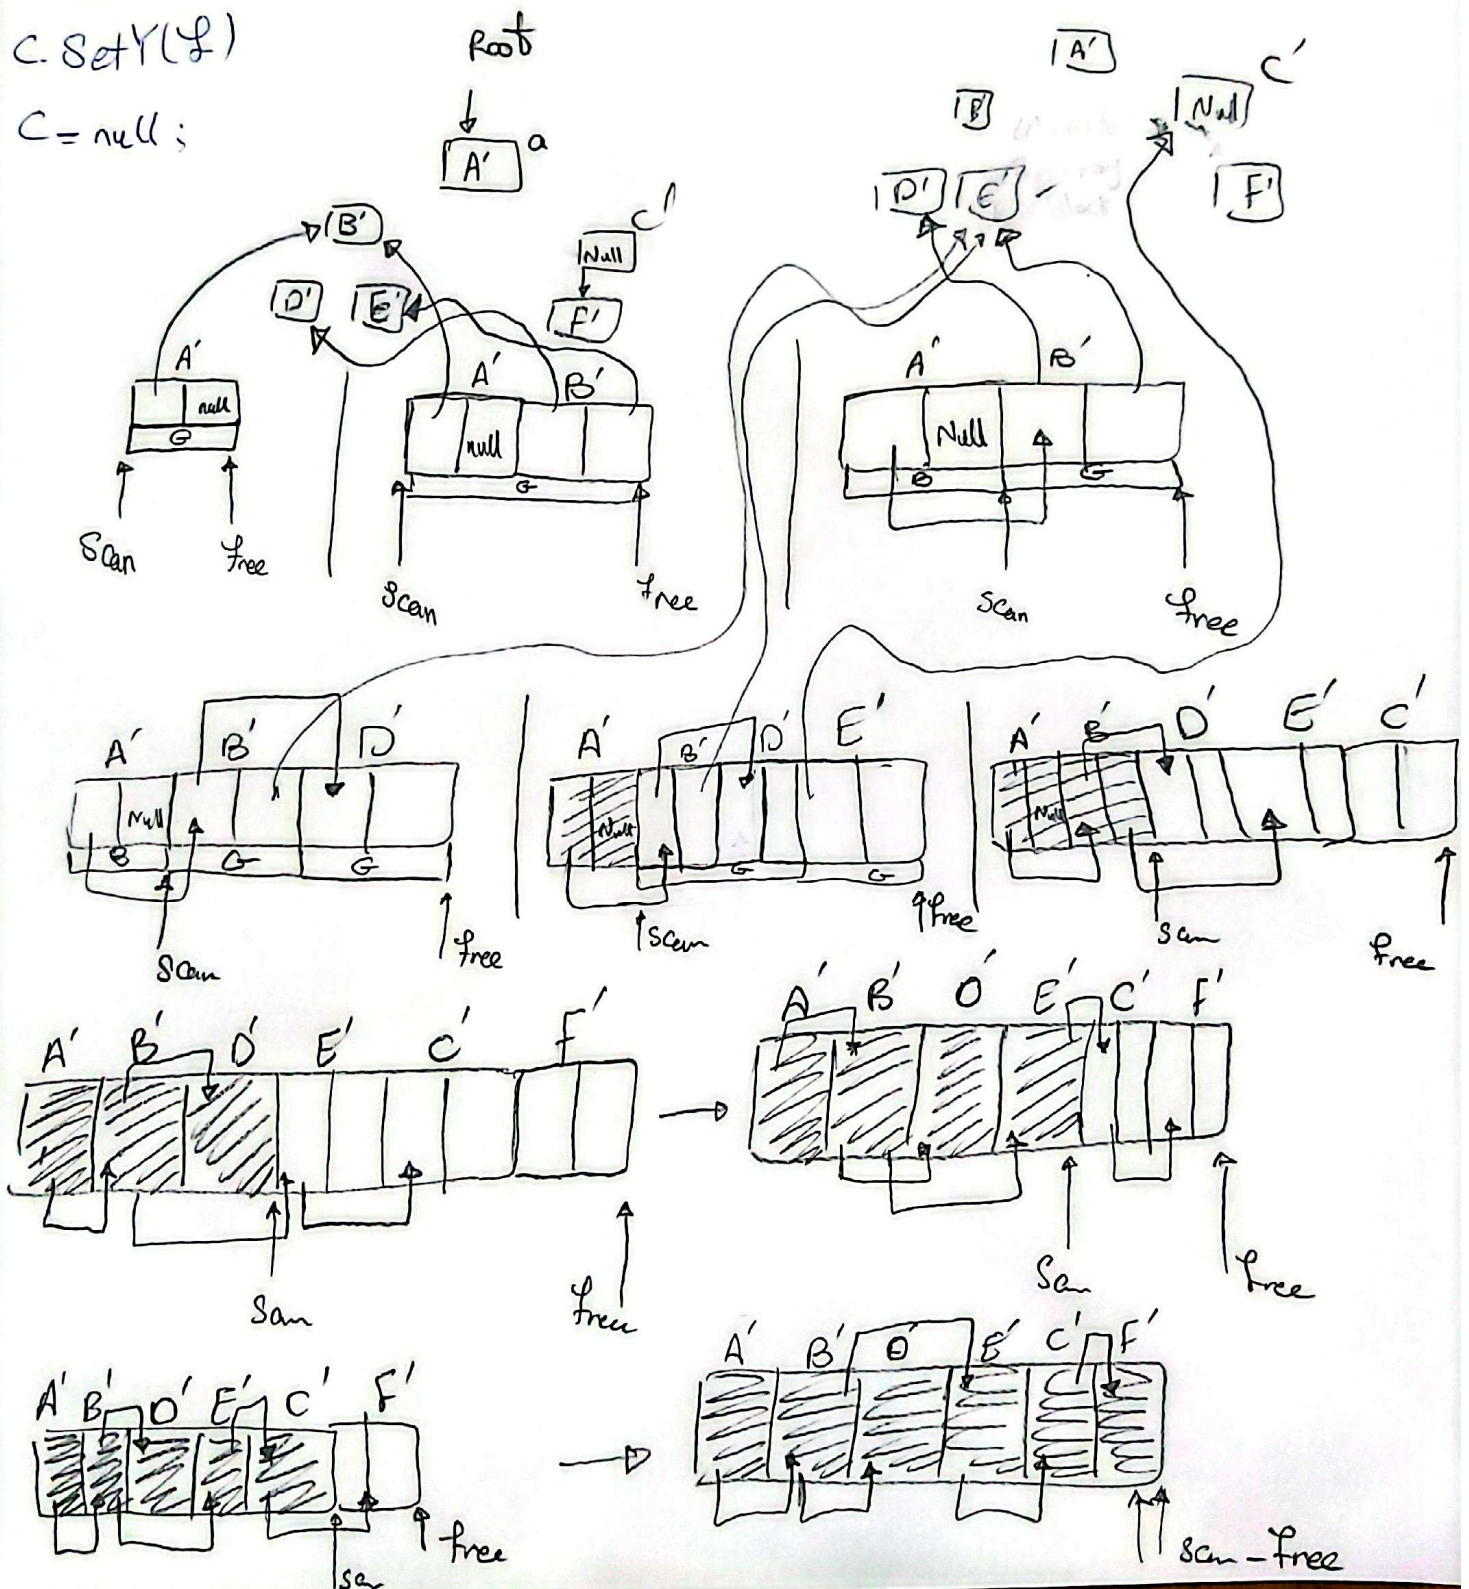 C. SetY(f)
C = null ;
Root
A' a
B'
C'
Null
D' E'
F'
A'
null
G
Scan free
A' B'
null
G
Scan free
A'
C'
Null
D' E'
F'
A' B'
Null
B G
Scan free
A' B' D'
Null
B G G
Scan free
A' B' D' E'
Null
G G
Scan free
A' B' D' E' C'
Null
Scan free
A' B' D' E' C' F'
Scan free
A' B' D' E' C' F'
Scan free
A' B' D' E' C' F'
Scan free
A' B' D' E' C' F'
Scan - free